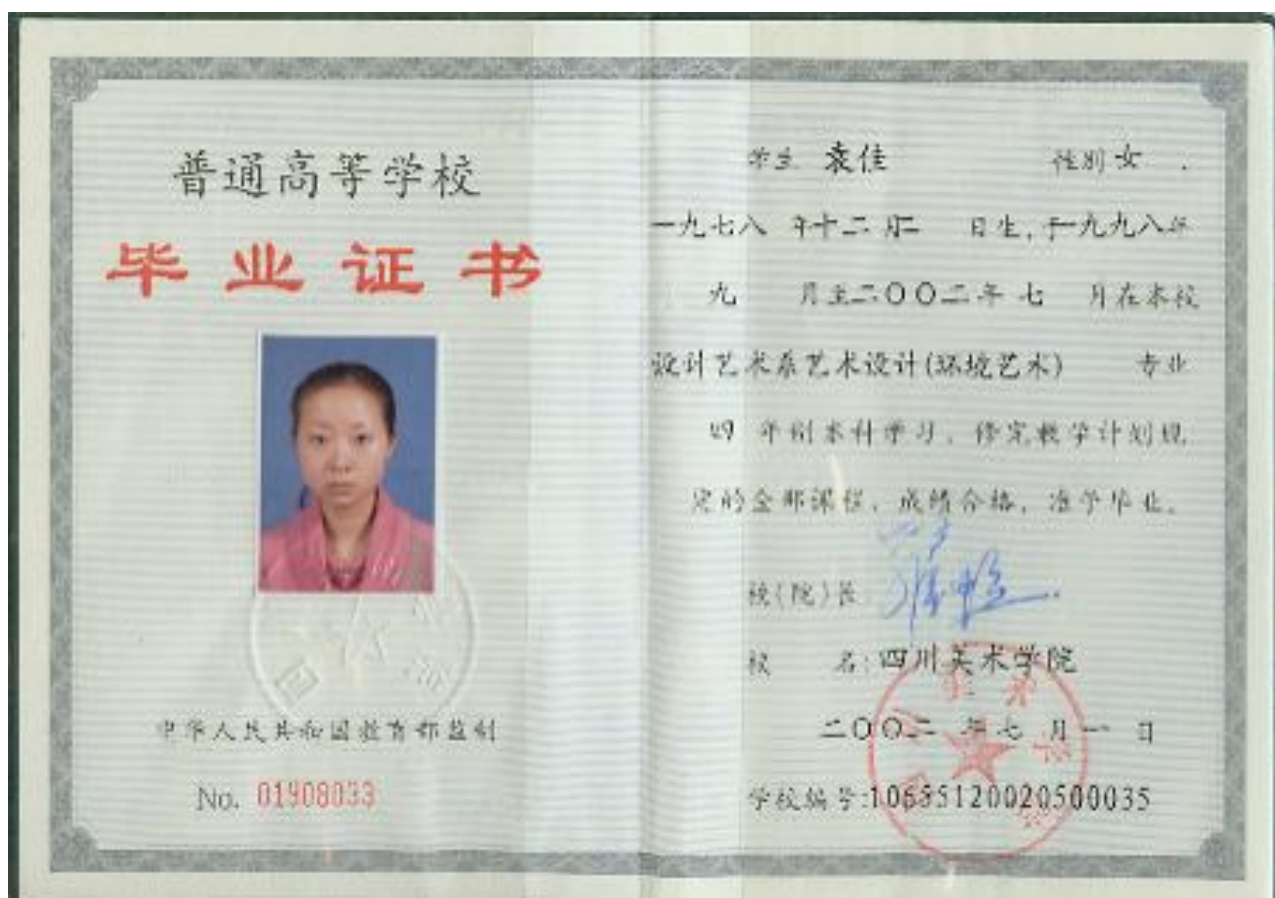 普通高等学校
毕业证书
中华人民共和国教育部监制
No. 01908033
学生 袁佳 性别 女 .
一九七八 年十二月二 日生,于一九九八年
九 月至二〇〇二年 七 月在本校
设计艺术系艺术设计(环境艺术) 专业
四 年制本科学习,修完教学计划规
定的全部课程,成绩合格,准予毕业。
校(院)长
校 名:四川美术学院
二〇〇二 年七 月一 日
学校编号:106551200205000035